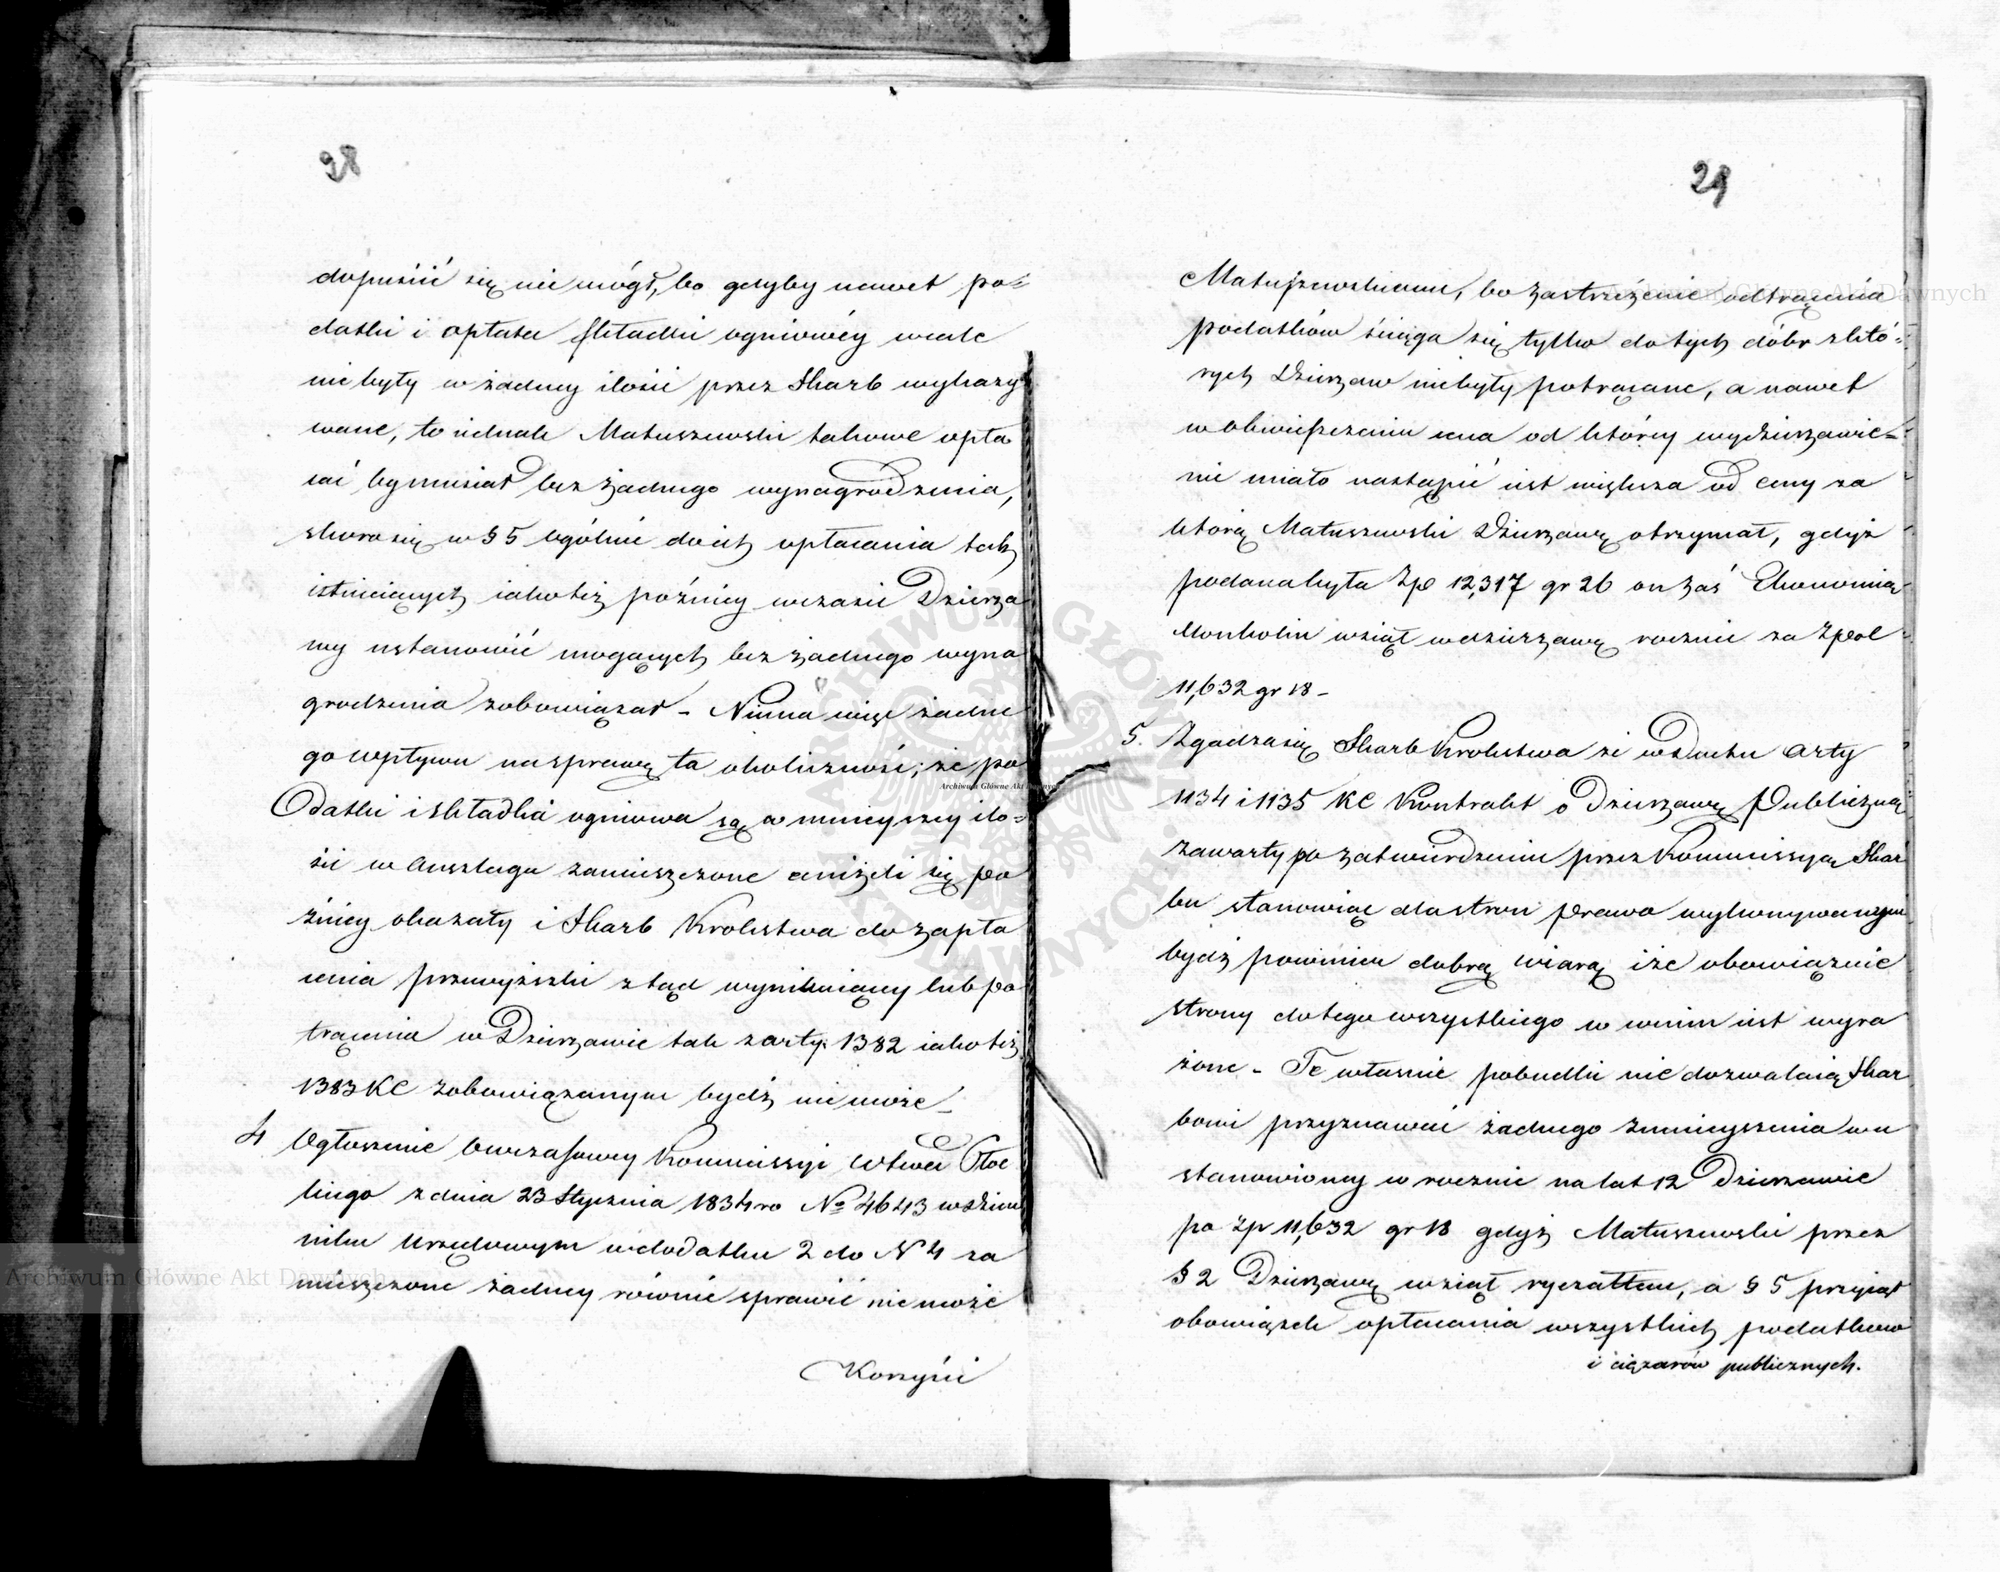 28
dopuścić się nie mógł, bo gdyby nawet po=
datki i opłata składki ogniowéy wcale
nie były w żadney ilości przez Skarb wykazy
wane, to iednak Matuszewski takowe opła
cać by musiał bez żadnego wynagrodzenia,
skoro się w § 5 ogólnie do ich opłacania tak
istnieiących iakotéż późniey w czasie Dzierża
wy ustanowić mogących bez żadnego wyna
grodzenia zobowiązał - Niema więc żadne
go wpływu na sprawę ta okoliczność; że po
Datki i składka ogniowa są w mnieyszey ilo=
ści w Anszlagu zamieszczone aniżeli się po
źniey okazały i Skarb Krolestwa do zapła
cenia przewyżki ztąd wynikaiącey lub po
trącenia w Dzierżawie tak z arty. 1382 iakotéż
1383 KC zobowiązanym bydź nie może_
4 Ogłoszenie Owczasowey Kommissyi Wtwa Płoc
kiego z dnia 23 Stycznia 1834 ro No 4643 w dzien
niku Urzędowym w dodatku 2 do N 4 za
mieszczone żadney równie sprawić nie może
Korzyści
29
Matuszewskiemu, bo zastrzeżenie odtrącenia
podatków ściąga się tylko do tych dóbr z któ=
rych Dzierżaw nie były potrącane, a nawet
w obwieszczeniu cena od któréy wydzierżawie=
nie miało nastąpić iest większa od ceny za
którą Matuszewski Dzierżawę otrzymał, gdyż
podana była Zp 12,317 gr 26 on zaś Ekonomią
Monkolin wziął w dzierżawę rocznie za Zpol
11,632 gr 18 -
5. Zgadza się Skarb Krolestwa że w Duchu Arty
1134 i 1135 KC Kontrakt o Dzierżawę Publiczną
zawarty po zatwierdzeniu przez Kommissyą Skar
bu stanowiąc dla stron prawo wykonywanym
bydź powinien dobrą wiarą iże obowiązuie
strony do tego wszystkiego co w nim iest wyra
żone - Te własnie pobudki nie dozwalaią Skar
bowi przyznawać żadnego zmnieyszenia w u
stanowioney w rocznie na lat 12 Dzierżawie
po Zp 11,632 gr 18 gdyż Matuszewski przez
§ 2 Dzierżawę wziął ryczałtem, a § 5 przyiął
obowiązek opłacania wszystkich podatkow
i ciężarów publicznych.
Archiwum Główne Akt Dawnych
Archiwum Główne Akt Dawnych
Archiwum Główne Akt Dawnych